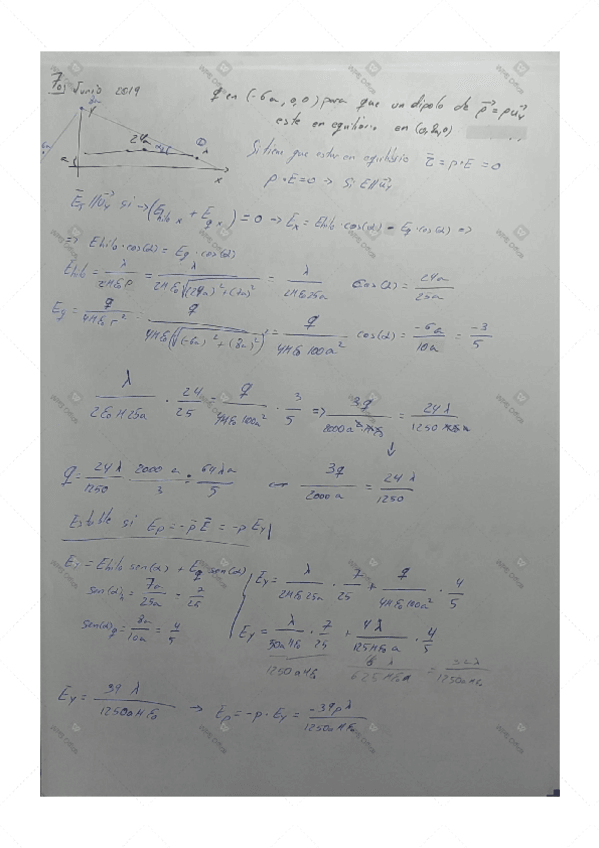 7.
Junio 2019
q en (-6a, 0, 0) para que un dipolo de p⃗ = p u⃗y
este en equilibrio en (0, 8a, 0)
8a
y
24a
x
Si tiene que estar en equilibrio τ̄ = p × E = 0
p × E = 0 → Si E // u⃗y
E⃗T // u⃗y si → (E hilo x + E q x) = 0 → Ex = Ehilo · cos(α) - Eq · cos(α) ⇒
⇒ Ehilo · cos(α) = Eq · cos(α)
Ehilo = λ/(2πε0 ρ) = λ/(2πε0 √((24a)² + (7a)²)) = λ/(2πε0 25a) cos(α) = 24a/25a
Eq = q/(4πε0 r²) = q/(4πε0 (√((-6a)² + (8a)²))²) = q/(4πε0 100a²) cos(α) = -6a/10a = -3/5
λ/(2ε0 π 25a) · 24/25 = q/(4πε0 100a²) · 3/5 ⇒ 3q/2000a = 24λ/1250
q = 24λ/1250 · 2000a/3 = 64λa/5 3q/2000a = 24λ/1250
Estable si Ep = -p⃗ E⃗ = -p Ey
Ey = Ehilo sen(α) + Eq sen(α)
sen(α)h = 7a/25a = 7/25
sen(α)q = 8a/10a = 4/5
Ey = λ/(2πε0 25a) · 7/25 + q/(4πε0 100a²) · 4/5
Ey = λ/(50aπε0) · 7/25 + 4λ/(125πε0 a) · 4/5
1250aπε0
Ey = 39λ/(1250aπε0) → Ep = -p · Ey = -39pλ/(1250aπε0)